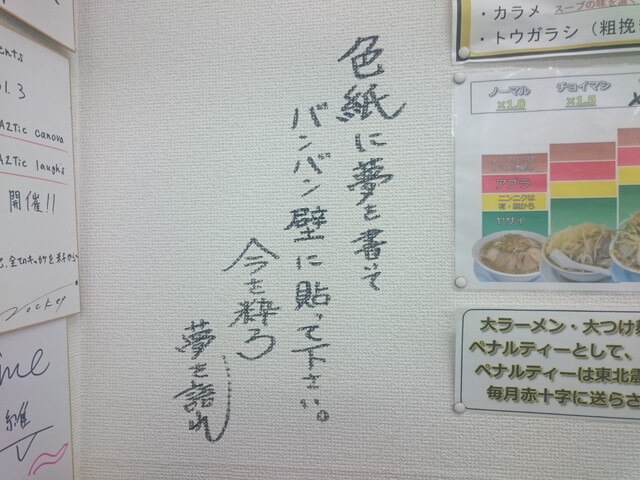 色紙に夢を書いて
バンバン壁に貼って下さい。
今を粋ろ
夢を語れ
ents
ol.3
A2Tic canova
A2Tic laugh's
開催!!
・カラメ
・トウガラシ（粗挽
ノーマル
×1.0
チョイマシ
×1.5
アブラ
ニンニクは
有・無から
ヤサイ
大ラーメン・大つけ麺
ペナルティーとして、
ペナルティーは東北震
毎月赤十字に送らさ